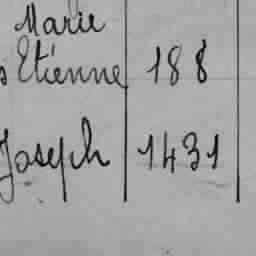 Marie
Etienne 188
Joseph 1431